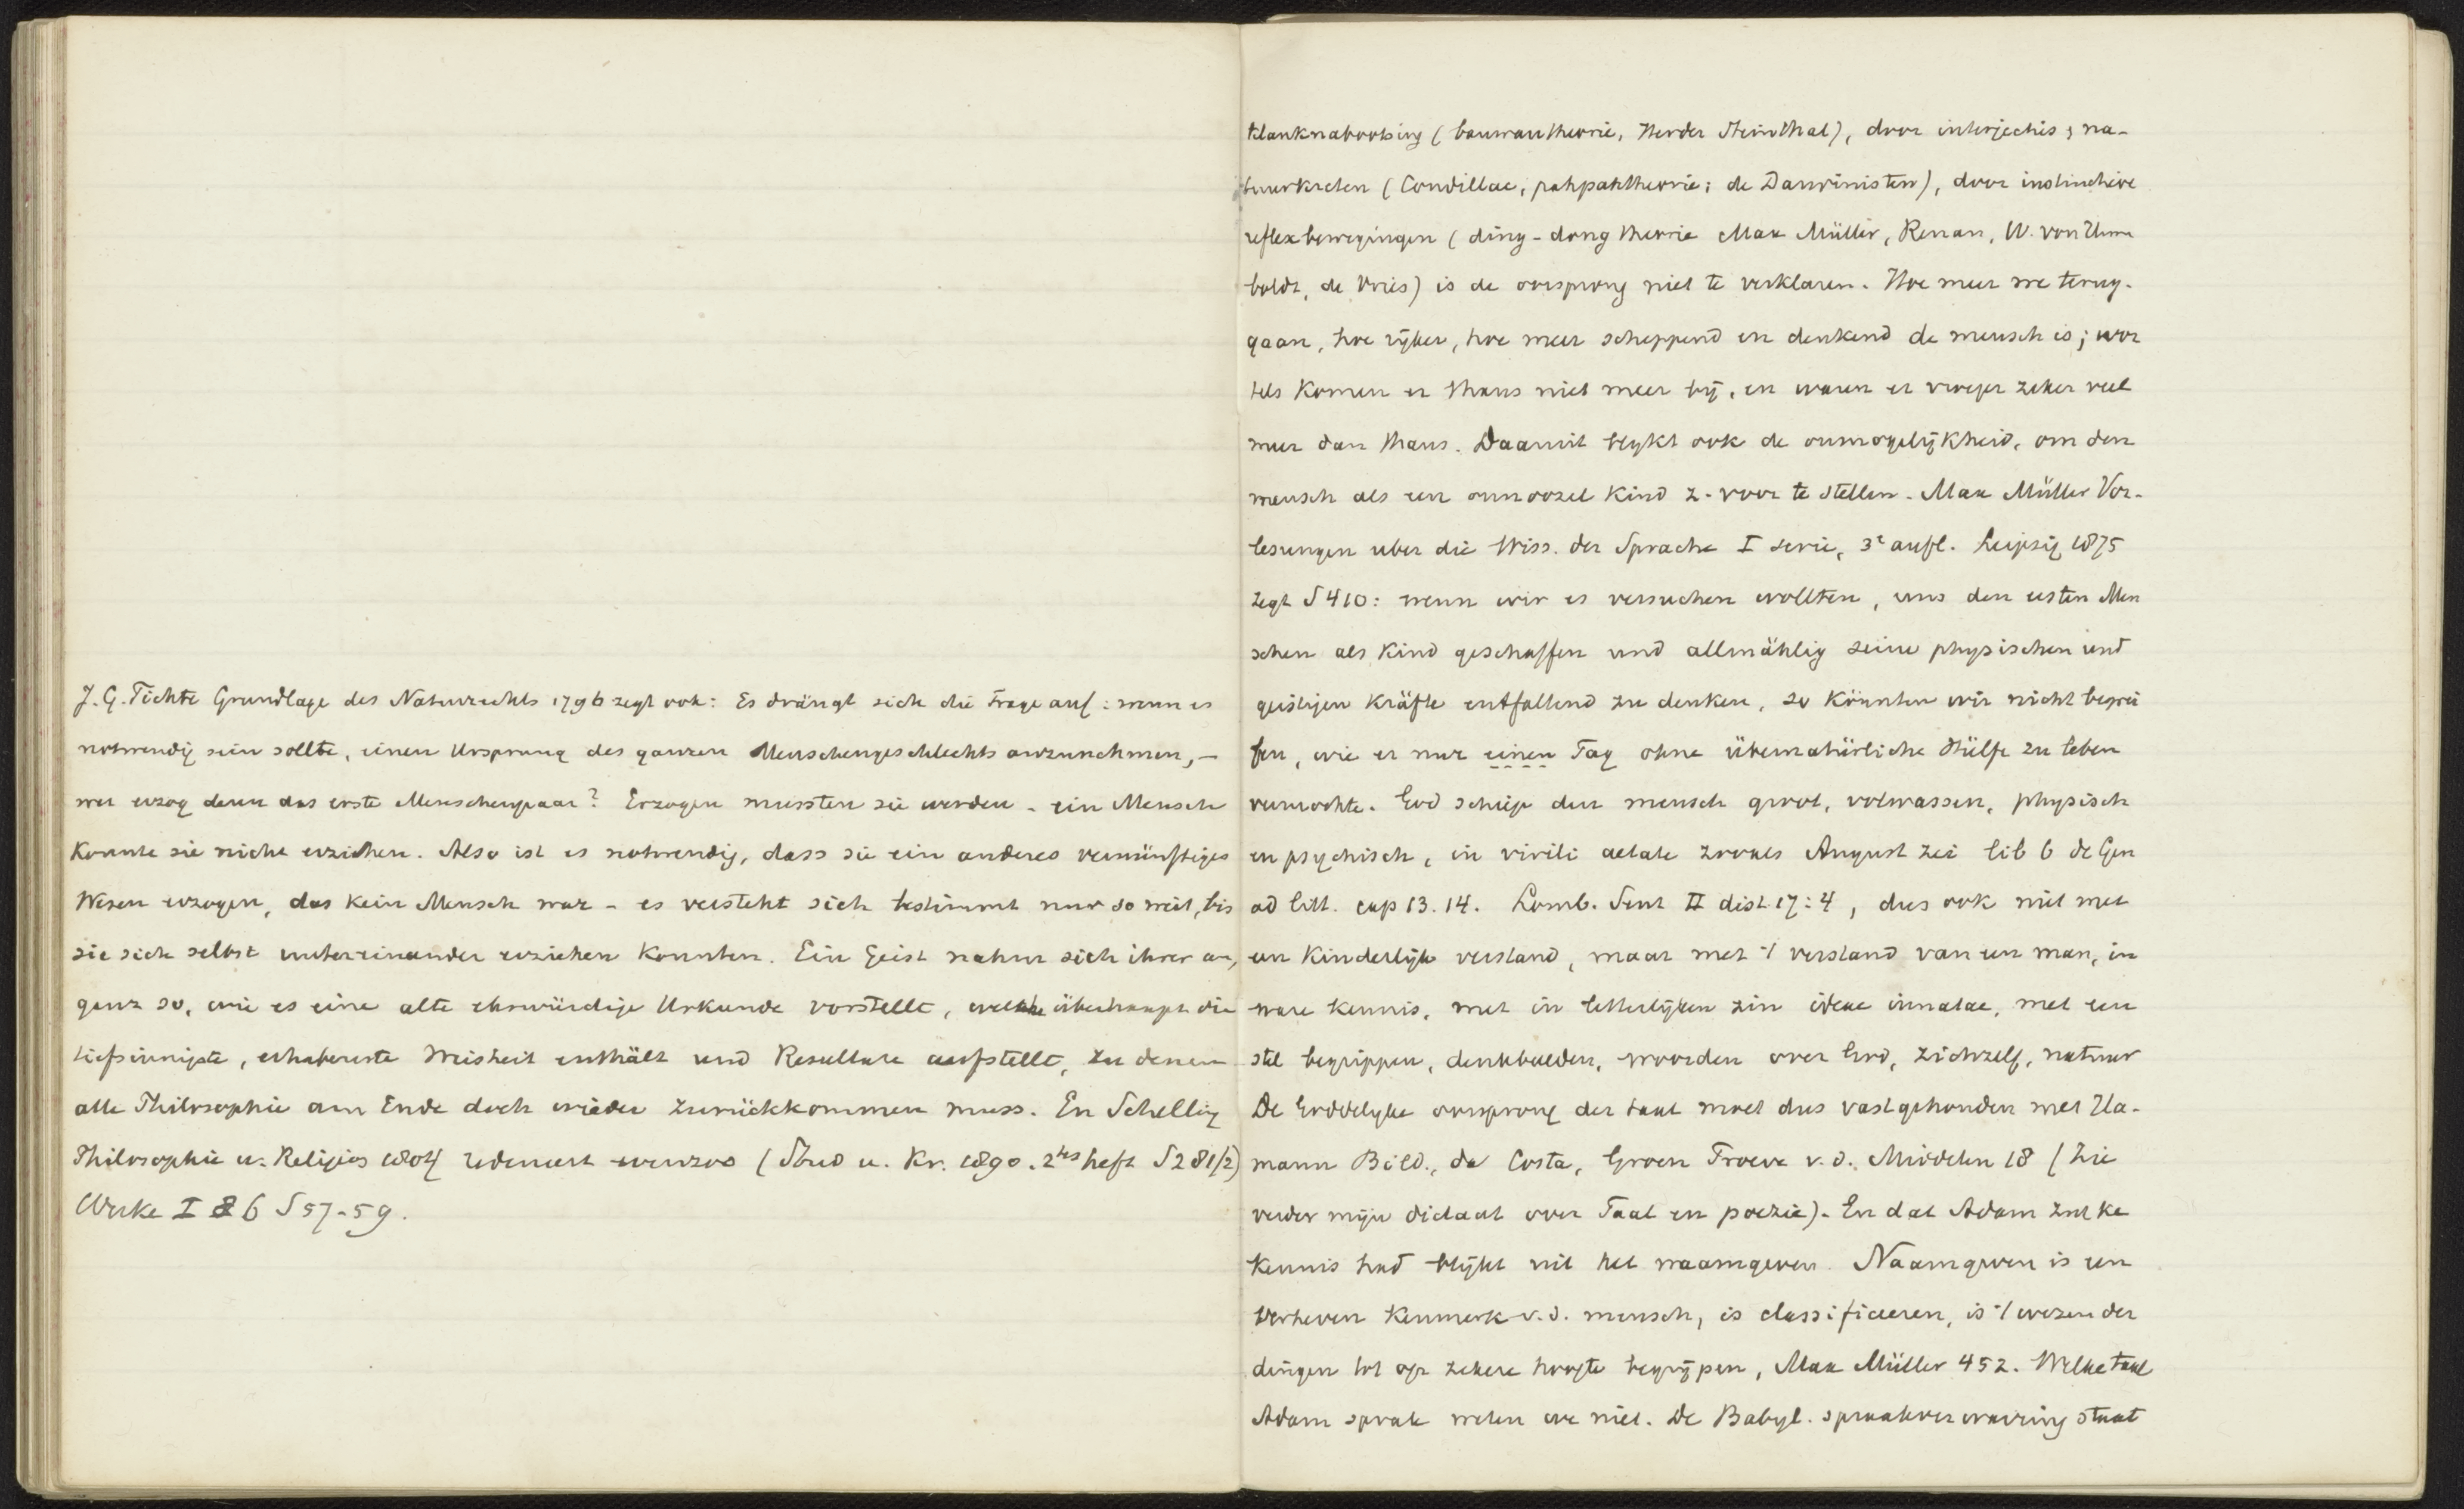 J. G. Fichte Grundlage des Naturrechts 1796 zegt ook: Es drängt sich die Frage auf: wenn es
notwendig sein sollte, einen Ursprung des ganzen Menschengeschlechts anzunehmen, —
wer erzog denn das erste Menschenpaar? Erzogen mussten sie werden - ein Mensch
konnte sie nicht erziehen. Also ist es notwendig, dass sie ein anderes vernünftiges
Wesen erzogen, das kein Mensch war - es versteht sich bestimmt nur so weit, bis
sie sich selbst untereinander erziehen konnten. Ein Geist nahm sich ihrer an,
ganz so, wie es eine alte ehrwürdige Urkunde vorstellt, welche überhaupt die
tiefsinnigste, erhabenste Weisheit enthält und Resultate aufstellt, zu denen
alle Philosophie am Ende doch wieder zurückkommen muss. En Schelling
Philosophie u. Religion 1804 redeneert evenzoo (Stud u. Kr. 1890. 2tes heft S 281/2)
Werke I 6 S 57-59.
klanknabootsing (bauwautheorie, Herder Steinthal), door interjecties, na-
tuurkreten (Condillac, pahpahtheorie; de Darwinisten), door instinctieve
reflexbewegingen (ding-dong theorie Max Müller, Renan, W. von Hum
boldt, de Vries) is de oorsprong niet te verklaren. Hoe meer we terug-
gaan, hoe rijker, hoe meer scheppend en denkend de mensch is; wor
tels komen er thans niet meer bij, en waren er vroeger zeker veel
meer dan thans. Daaruit blykt ook de onmogelijkheid, om den
mensch als een onnoozel kind z. voor te stellen. Max Müller Vor-
lesungen uber die Wiss. der Sprache I serie, 3e aufl. Leipzig 1875
zegt S 410: wenn wir es versuchen wollten, uns den ersten Men
schen als Kind geschaffen und allmählig seine physischen und
geistigen Kräfte entfaltend zu denken, so könnten wir nicht begrei
fen, wie er nur einen Tag ohne übernatürliche Hülfe zu leben
vermochte. God schiep den mensch groot, volwassen, physisch
en psychisch, in virili aetate zooals August zei lib 6 de Gen
ad litt. cap 13. 14. Lomb. Sent II dist. 17:4, dus ook niet met
een kinderlijk verstand, maar met 't verstand van een man, in
ware kennis, met in letterlijken zin ideae innatae, met een
stel begrippen, denkbeelden, woorden over God, zichzelf, natuur
De Goddelyke oorsprong der taal moet dus vastgehouden met Ha-
mann Bild., da Costa, Groen Proeve v. d. Middelen 18 (Zie
verder mijn dictaat over Taal en poezie). En dat Adam zulke
kennis had blijkt uit het naamgeven. Naamgeven is een
verheven kenmerk v. d. mensch, is classificeeren, is 't wezen der
dingen tot op zekere hoogte begrijpen, Max Müller 452. Welke taal
Adam sprak weten we niet. De Babyl. spraakverwarring staat